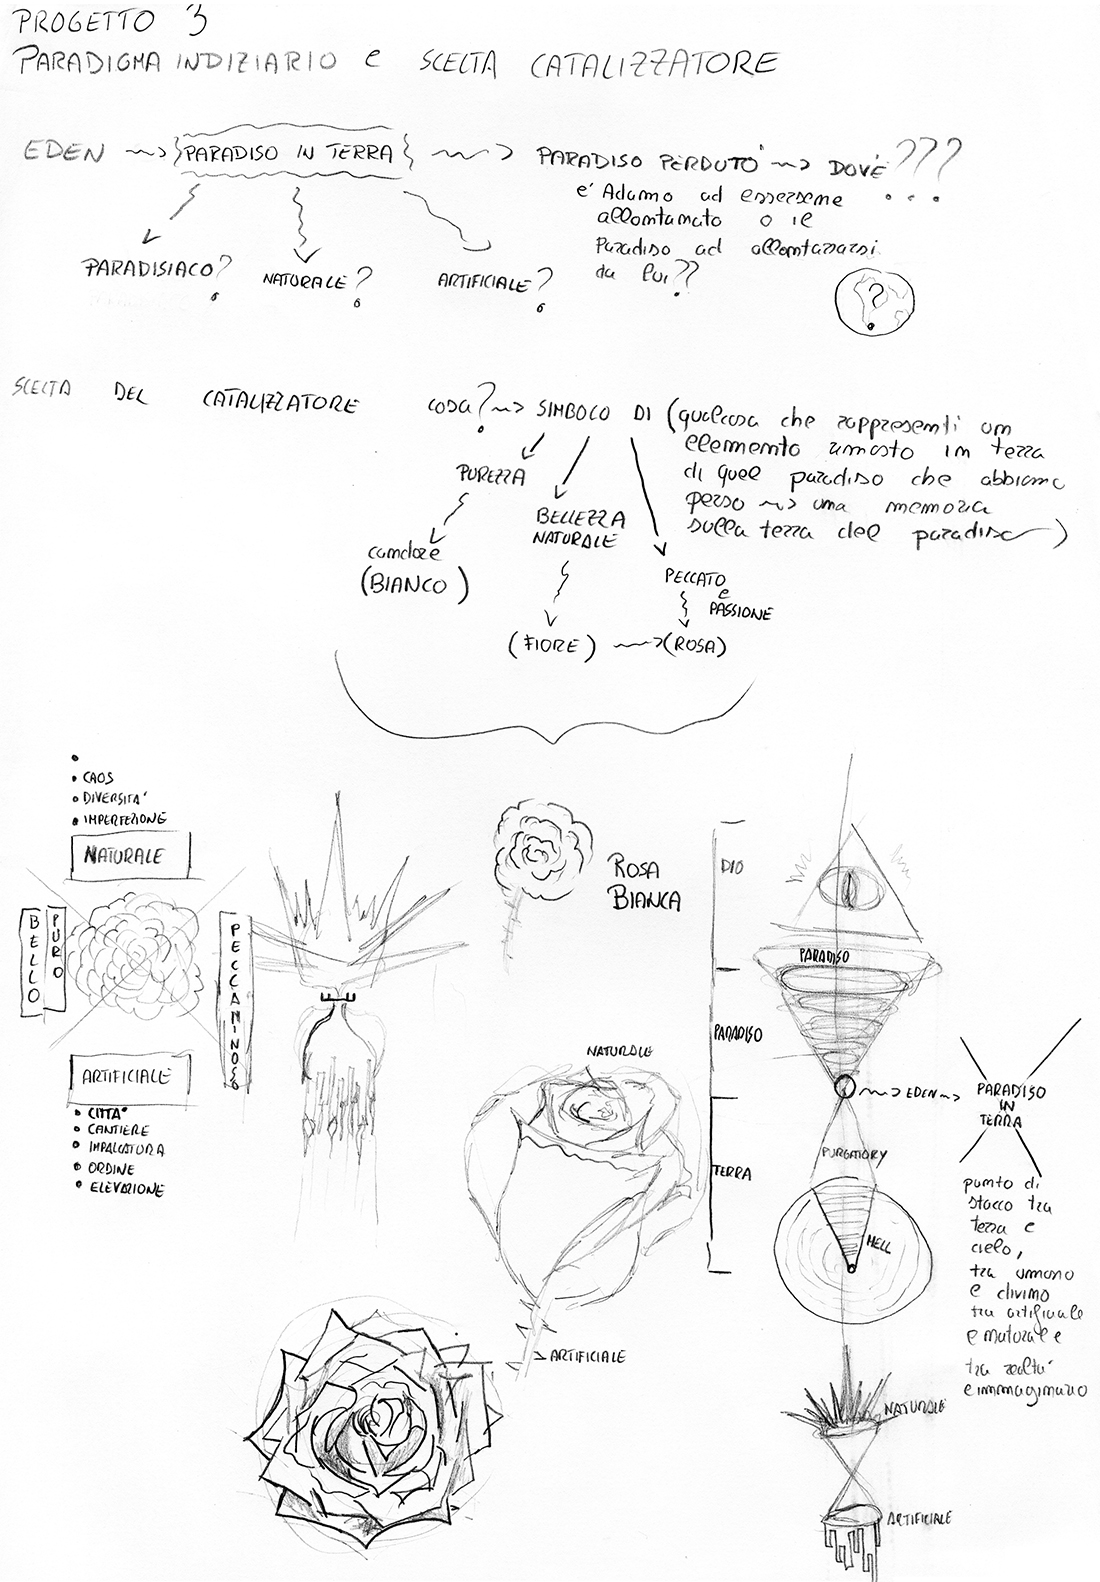 PROGETTO 3
PARADIGMA INDIZIARIO e SCELTA CATALIZZATORE
EDEN ~> {PARADISO IN TERRA} ~> PARADISO PERDUTO ~> DOV'È ??? ...
è Adamo ad essersene
allontanato o il
Paradiso ad allontanarsi
da lui??
PARADISIACO?
NATURALE?
ARTIFICIALE?
?
SCELTA DEL CATALIZZATORE cosa? ~> SIMBOLO DI (qualcosa che rappresenti un
elemento rimasto in terra
di quel paradiso che abbiamo
perso ~> una memoria
sulla terra del paradiso)
PUREZZA
candore
(BIANCO)
BELLEZZA
NATURALE
(FIORE) ~> (ROSA)
PECCATO
e
PASSIONE
• CAOS
• DIVERSITA'
• IMPERFEZIONE
NATURALE
BELLO
PURO
PECCAMINOSO
ARTIFICIALE
• CITTA'
• CANTIERE
• IMPALCATURA
• ORDINE
• ELEVAZIONE
ROSA
BIANCA
NATURALE
ARTIFICIALE
DIO
PARADISO
PARADISO
TERRA
~> EDEN ~> PARADISO
IN
TERRA
PURGATORY
HELL
punto di
stacco tra
terra e
cielo,
tra umano
e divino
tra artificiale
e naturale
tra realtà
e immaginario
NATURALE
ARTIFICIALE